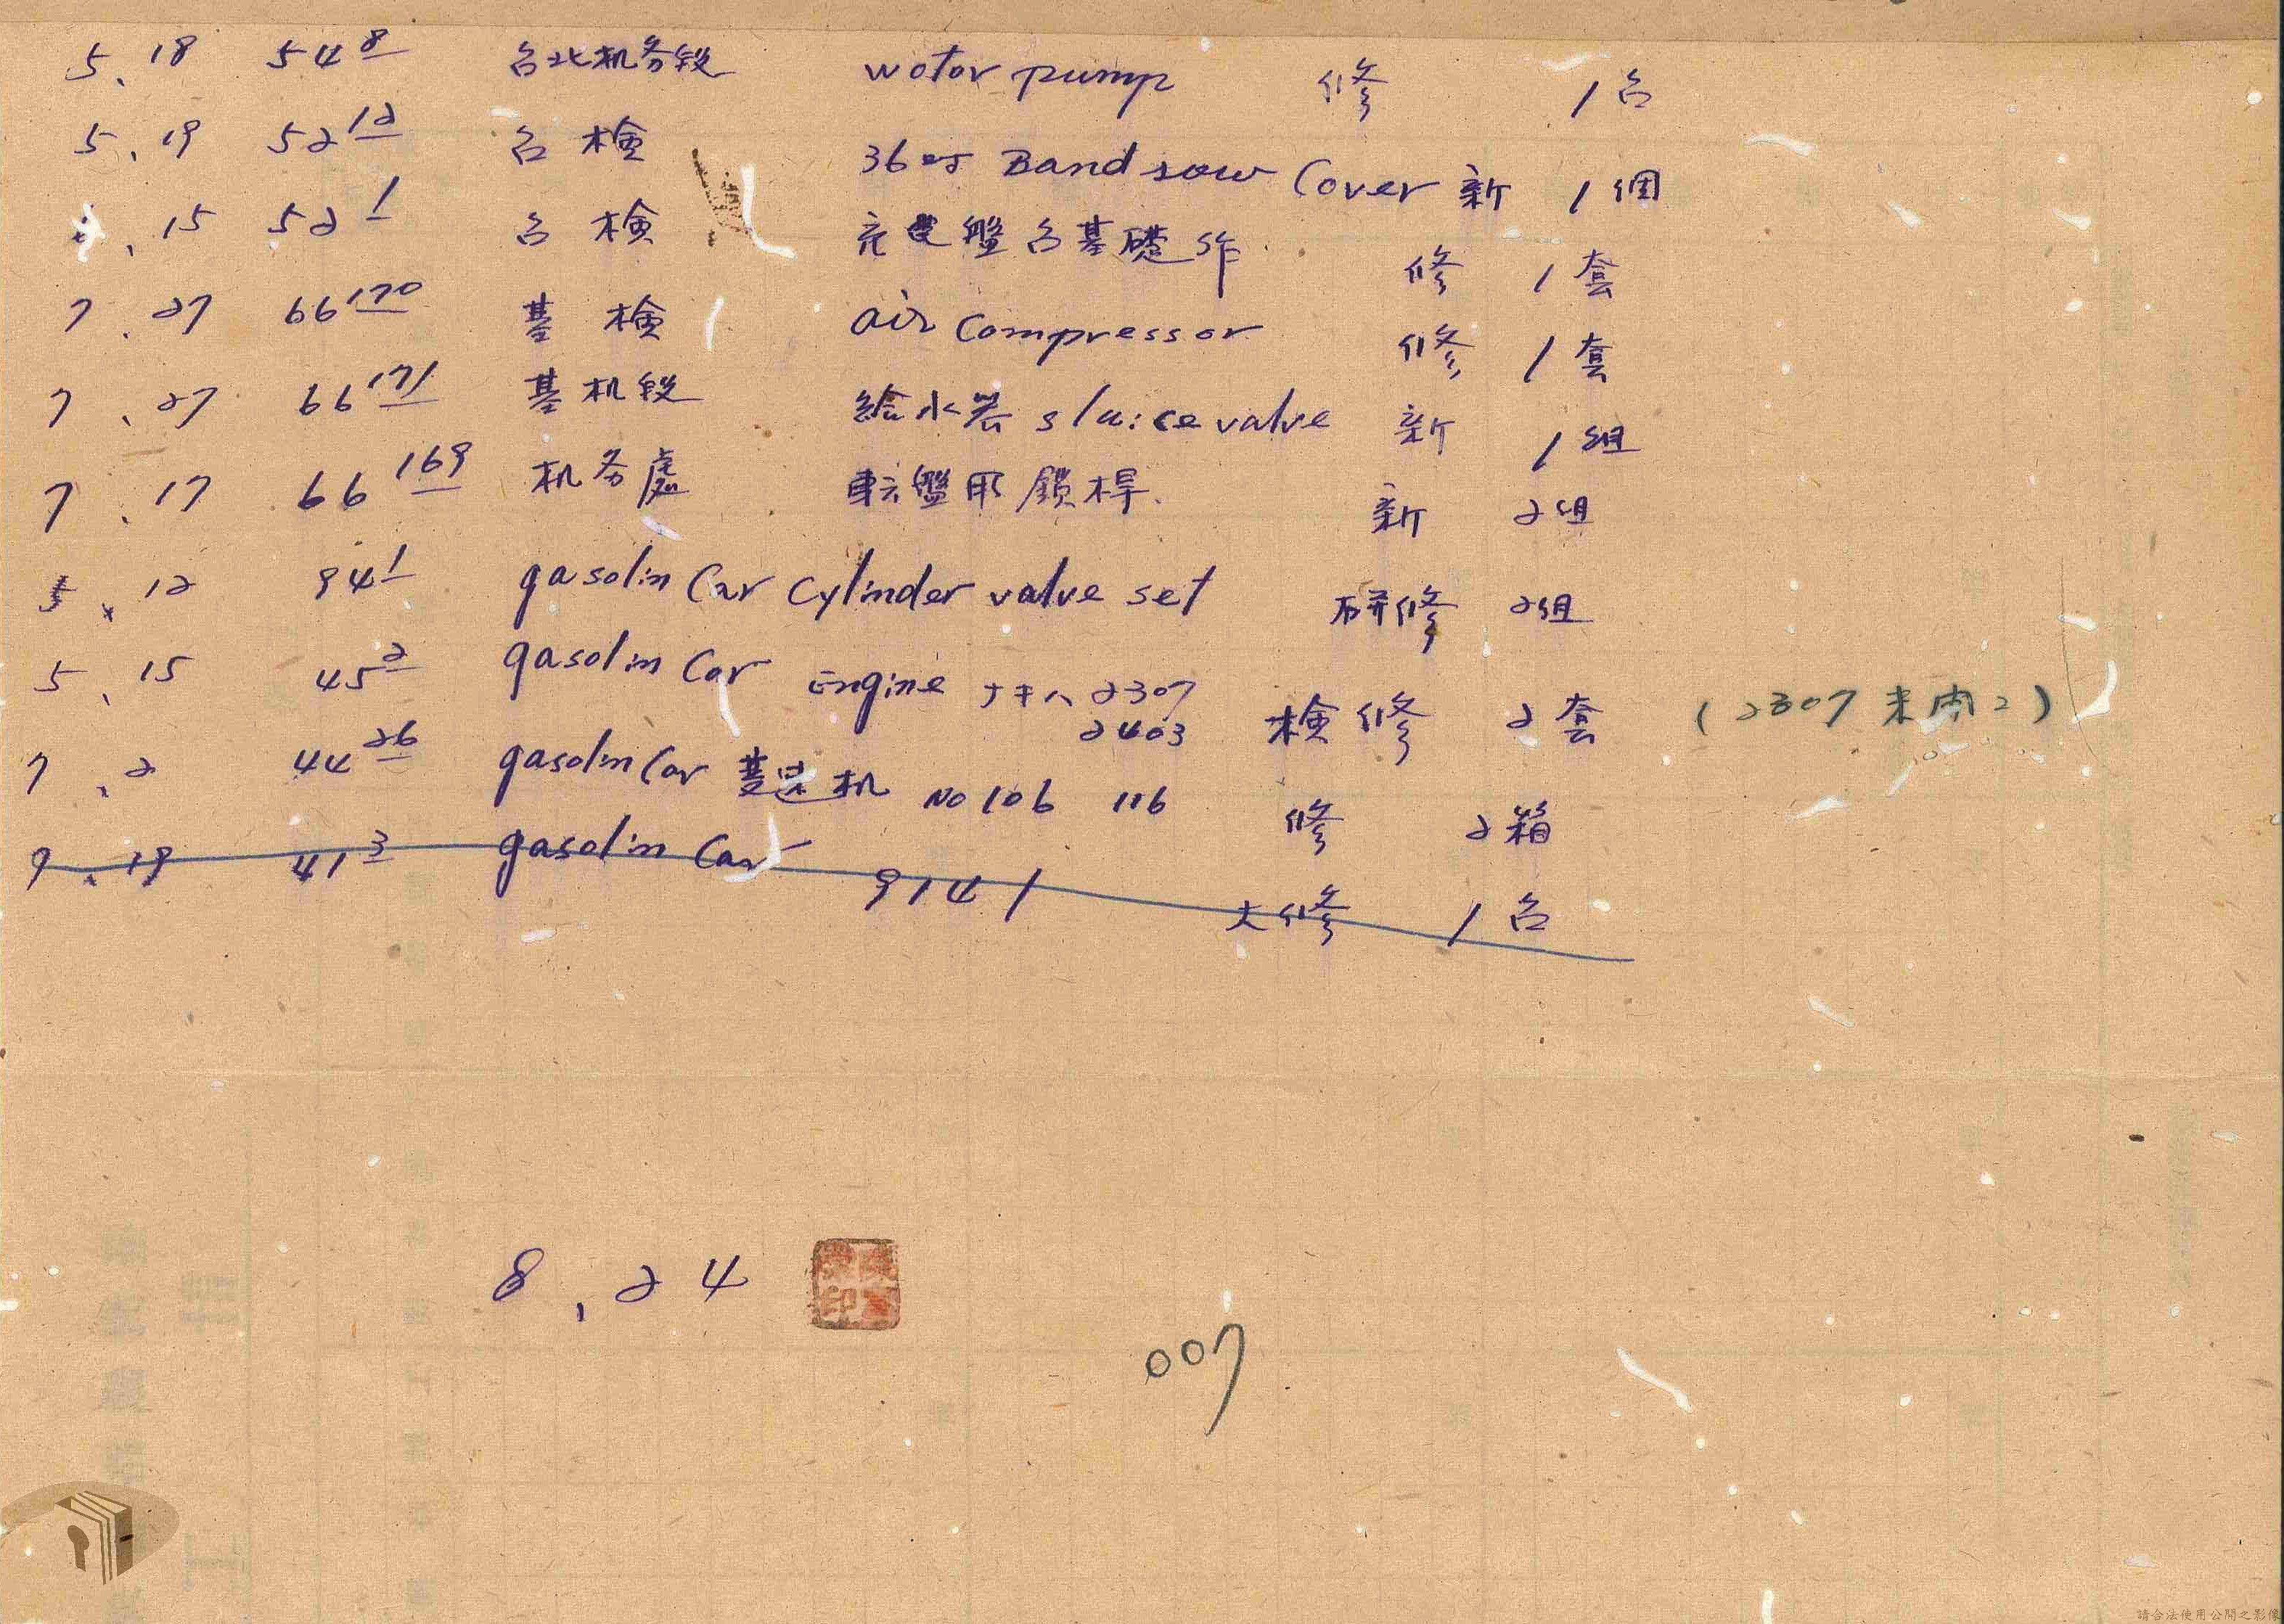 5、18 54 8 台北机务段 wotor pump 修 1台
5、19 52 12 台檢 36吋 Band saw Cover 新 1個
、15 52 1 台檢 充電盤台基礎作 修 1套
7、27 66 170 基檢 air compressor 修 1套
7、27 66 171 基机段 給水器 sluice valve 新 1組
7、17 66 169 机务處 転盤用鎖桿 新 2組
5、12 94 1 gasolin Car Cylinder valve set 研修 2組
5、15 45 2 gasolin Car Engine ナキハ 2307 2403 檢修 2套 (2307 未)
7、2 44 26 gasolin Car 变速机 No 106 116 修 2箱
9、19 41 3 gasolin Car 9141 大修 1台
8、24
印
007
請合法使用公開之影像